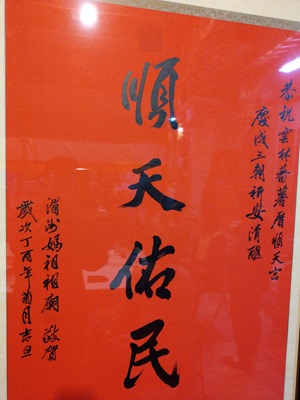 恭祝雲林蕃薯厝順天宮
慶成三朝祈安清醮
順天佑民
湄洲媽祖祖廟 敬賀
歲次丁酉年菊月吉旦